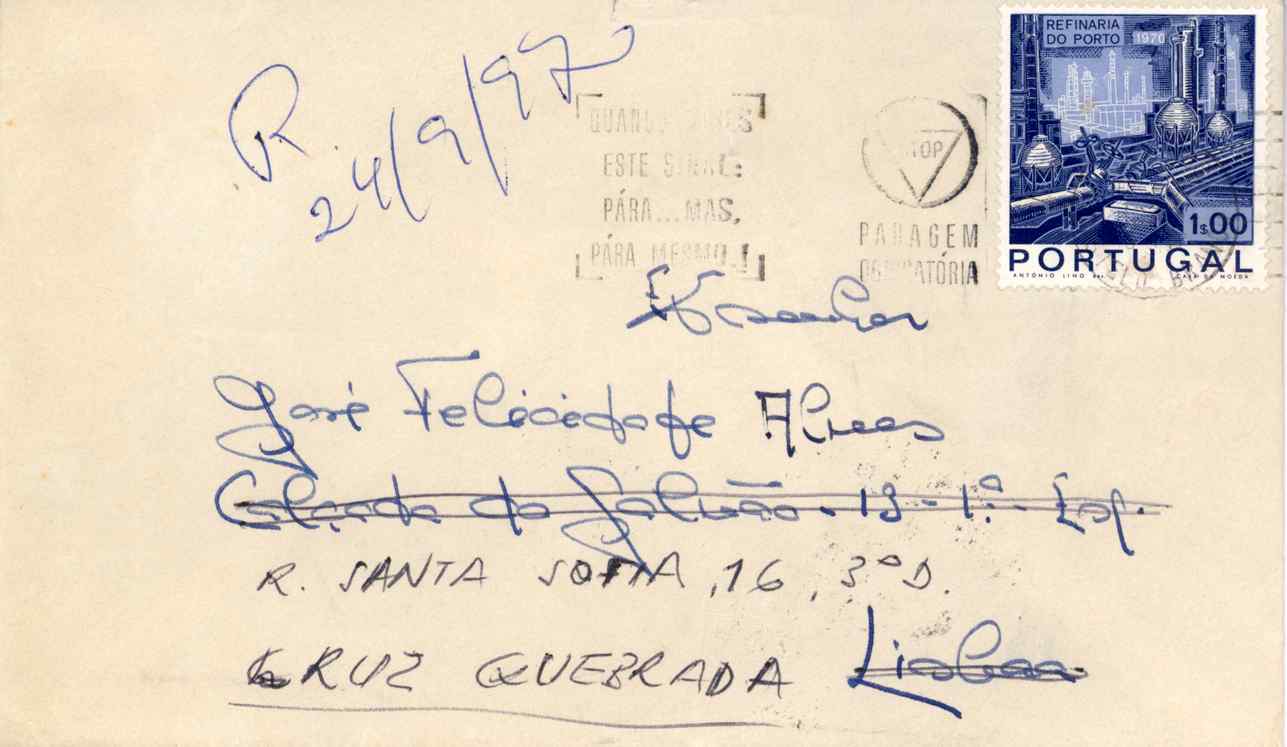 REFINARIA
DO PORTO 1970
1$00
PORTUGAL
ANTÓNIO LINO CASA DA MOEDA
R
24/9/97
ESTE SINAL:
PÁRA...MAS,
PÁRA MESMO!
STOP
PARAGEM
OBRIGATÓRIA
José Felicidade Alves
Calçada do Galvão - 13 - 1º - Esq.
R. SANTA SOFIA, 16, 3º D.
CRUZ QUEBRADA Lisboa